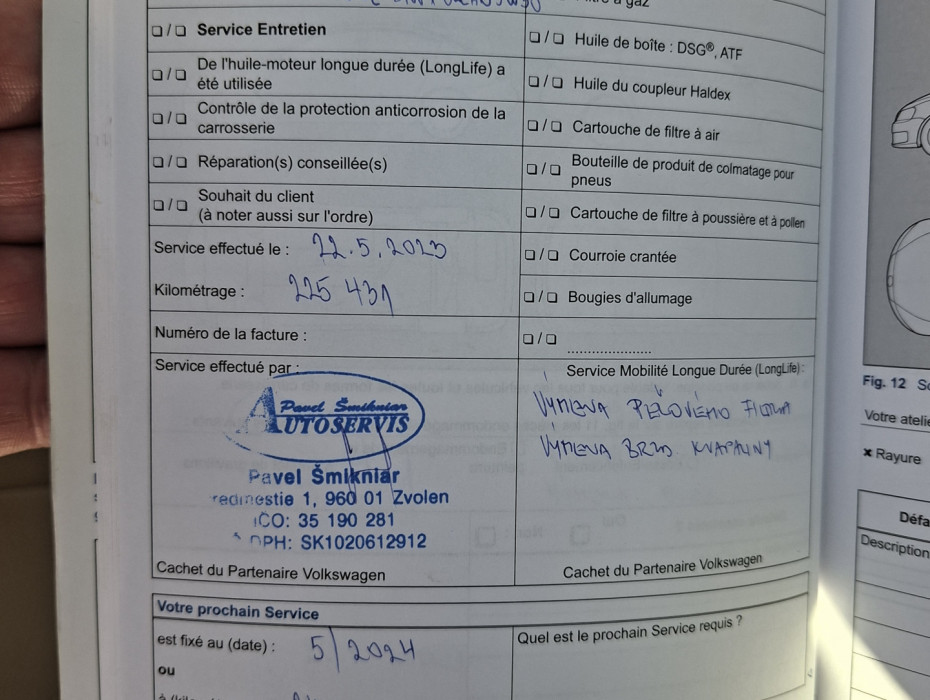 Service Entretien
De l'huile-moteur longue durée (LongLife) a
été utilisée
Contrôle de la protection anticorrosion de la
carrosserie
Réparation(s) conseillée(s)
Souhait du client
(à noter aussi sur l'ordre)
Service effectué le : 22.5.2023
Kilométrage : 225 431
Numéro de la facture :
Service effectué par :
Pavel Šmikniar
AUTOSERVIS
Pavel Šmikniar
redmestie 1, 960 01 Zvolen
IČO: 35 190 281
DPH: SK1020612912
Cachet du Partenaire Volkswagen
à gaz
Huile de boîte : DSG®, ATF
Huile du coupleur Haldex
Cartouche de filtre à air
Bouteille de produit de colmatage pour
pneus
Cartouche de filtre à poussière et à pollen
Courroie crantée
Bougies d'allumage
Service Mobilité Longue Durée (LongLife):
VÝMENA PEĽOVÉHO FILTRA
VÝMENA BRZD. KVAPALINY
Cachet du Partenaire Volkswagen
Votre prochain Service
est fixé au (date) : 5/2024
ou
Quel est le prochain Service requis ?
Fig. 12
Votre atelie
× Rayure
Défa
Description